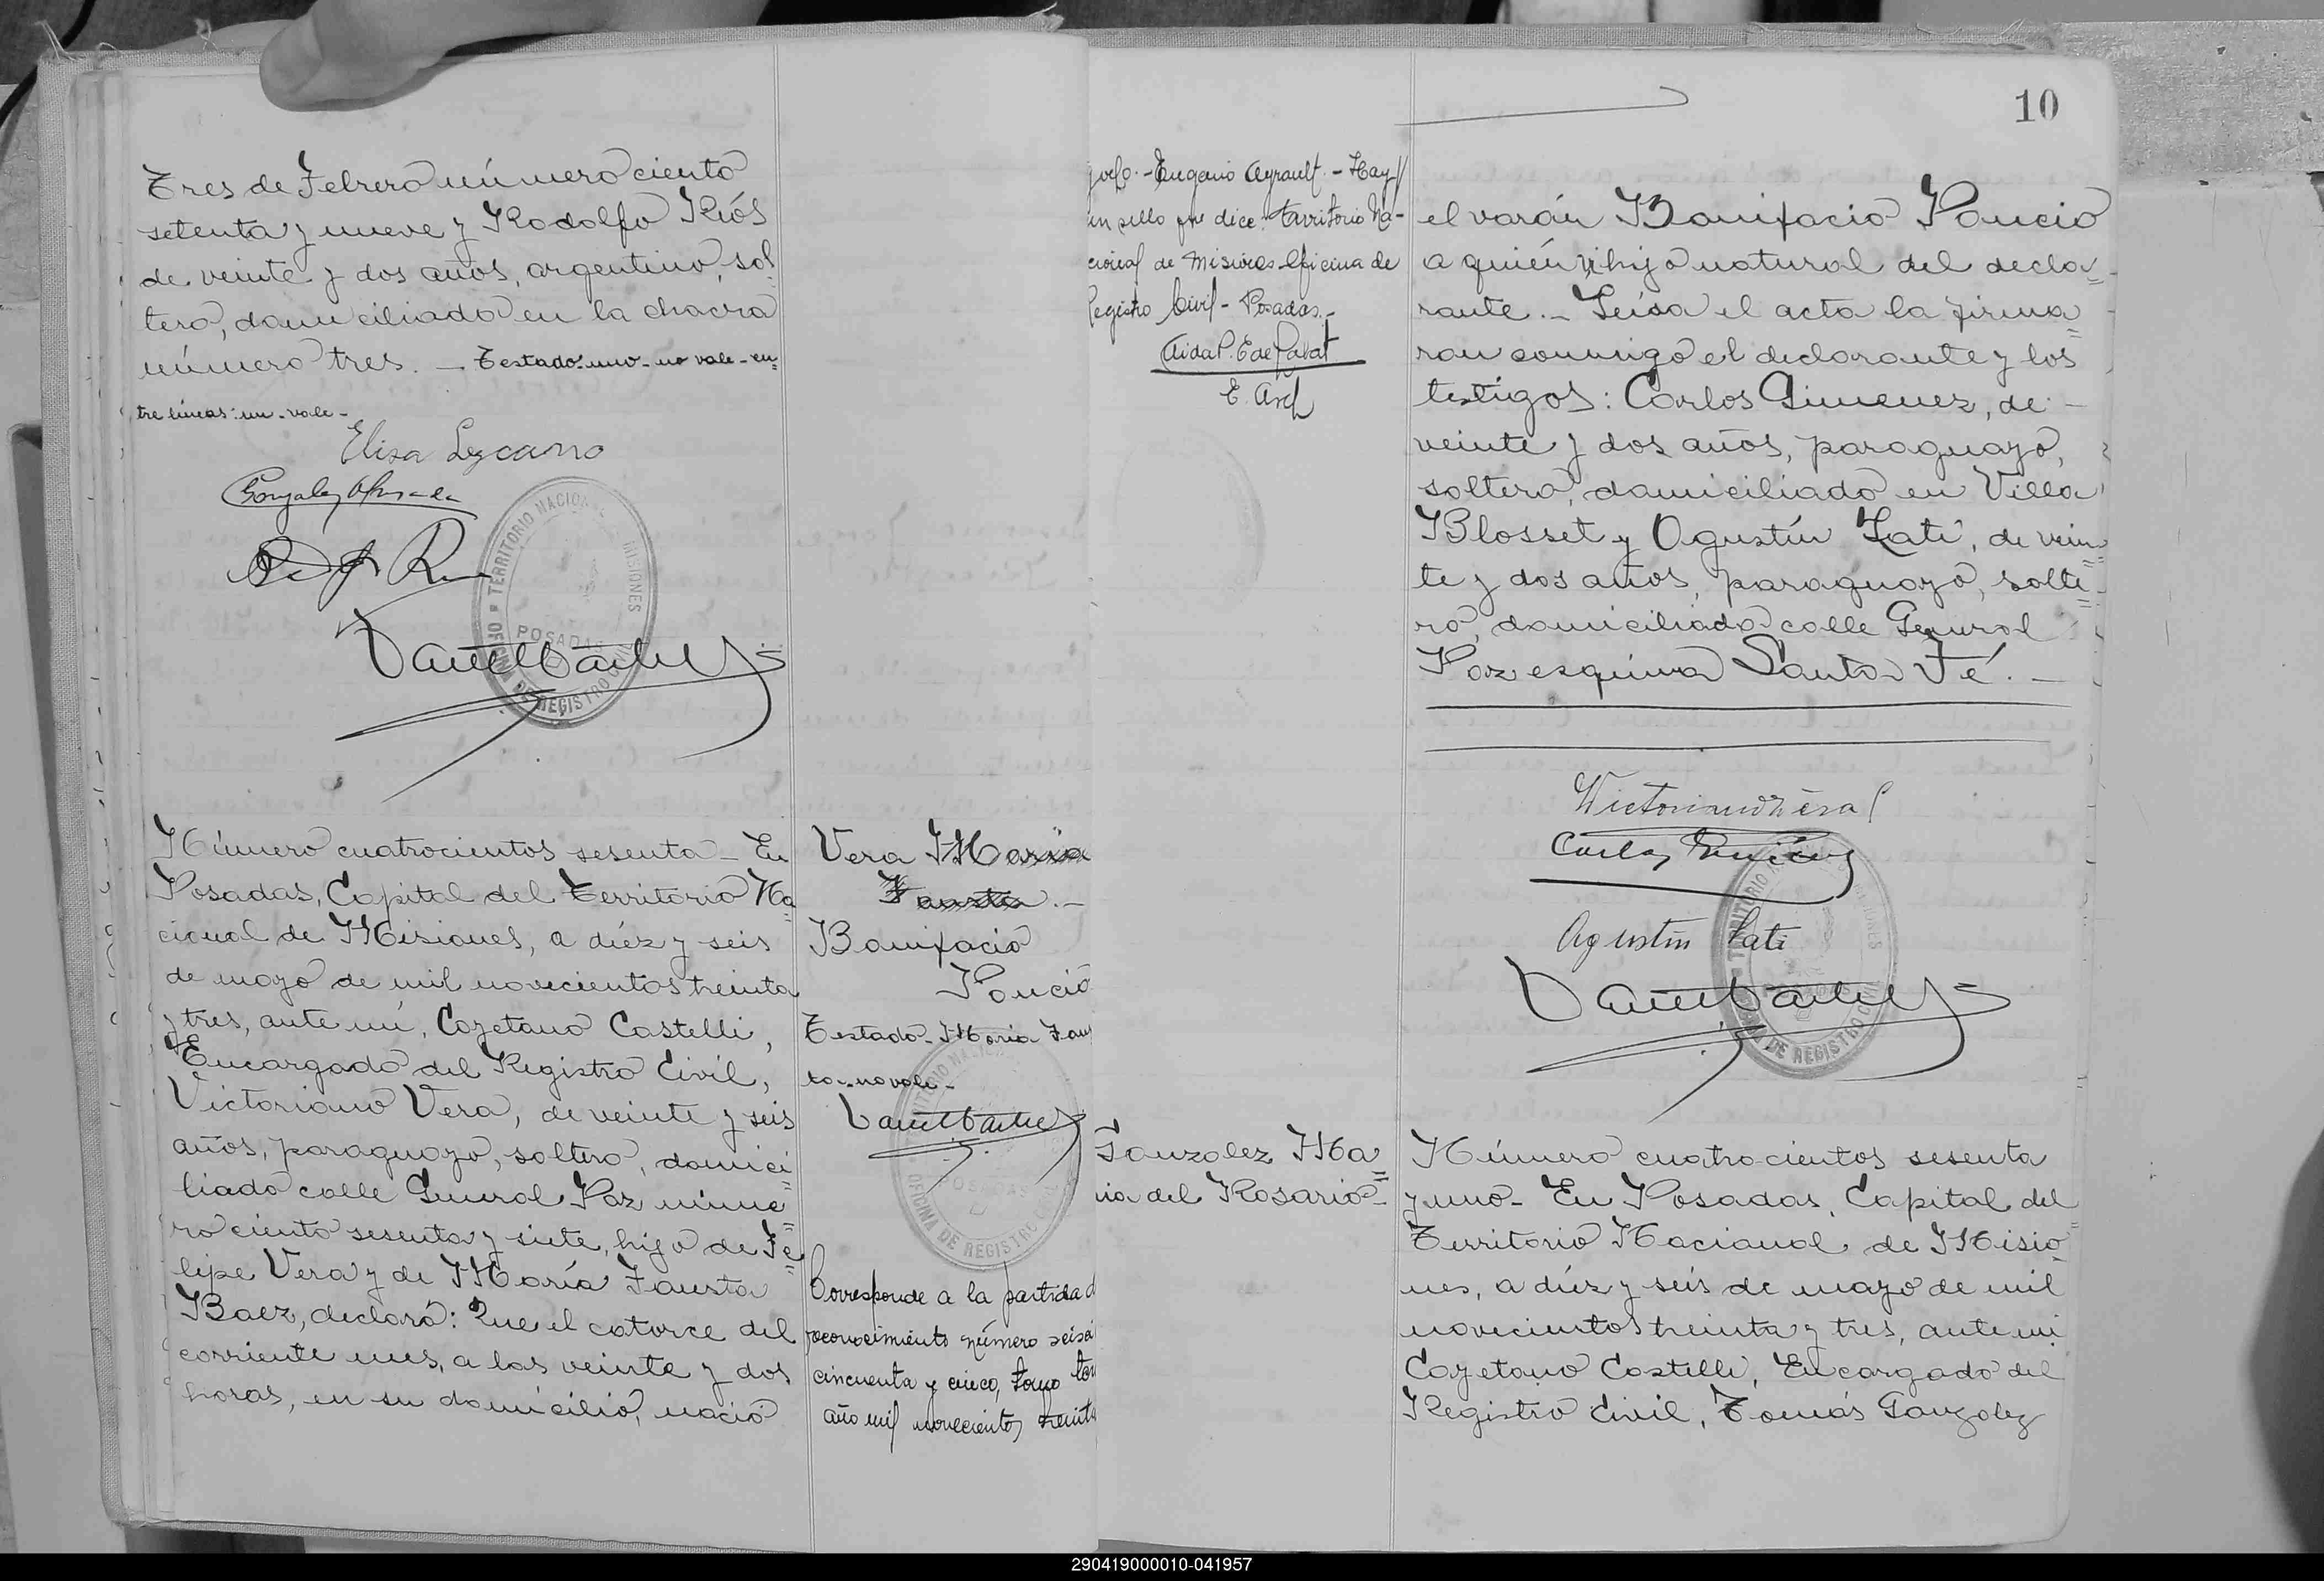 Tres de Febrero número ciento
setenta y nueve y Rodolfo Riós
de veinte y dos años, argentino, sol
tero, domiciliado en la chacra
número tres. — Testado: uno - no vale - en=
tre líneas: un - vale -
Elisa Lezcano
TERRITORIO NACIONAL MISIONES
POSADAS
OFICINA DE REGISTRO CIVIL
Número cuatrocientos sesenta - En
Posadas, Capital del Territorio Na=
cional de Misiones, a diéz y seis
de mayo de mil novecientos treinta
y tres, ante mí, Cayetano Castelli,
Encargado del Registro Civil,
Victoriano Vera, de veinte y seis
años, paraguayo, soltero, domici=
liado calle General Paz núme=
ro ciento sesenta y siete, hijo de Fe=
lipe Vera y de María Fausta
Baez, declaró: Que el catorce del
corriente mes, a las veinte y dos
horas, en su domicilio, nació
Vera Maria
Fausta. -
Bonifacio
Poncio
Testado - Maria Faus
ta - no vale -
OFICINA DE REGISTRO
Corresponde a la partida d
reconocimiento número seisci
cincuenta y cinco, tomo
año mil novecientos treinta
Eugenio Ayrault. - Hay
un sello que dice: Territorio Na-
cional de Misiones Oficina de
Registro Civil - Posadas. -
10
el varón Bonifacio Poncio
a quién hijo natural del decla=
rante. - Leísa el acta la firma=
ron conmigo el declarante y los
testigos: Carlos Gimenez, de -
veinte y dos años, paraguayo,
soltero, domiciliado en Villa
Blosset y Agustín Zati, de vein=
te y dos años, paraguayo, solte=
ro, domiciliado calle General
Paz esquina Santa Fé. -
Carlos Gimenez
Agustin Zati
TERRITORIO
DE REGISTRO CIVIL
Gonzalez Ma=
ria del Rosario -
Número cuatrocientos sesenta
y uno - En Posadas, Capital del
Territorio Nacional de Misio=
nes, a diéz y seis de mayo de mil
novecientos treinta y tres, ante mi
Cayetano Castelli, Encargado del
Registro Civil, Tomás Gonzalez
290419000010-041957